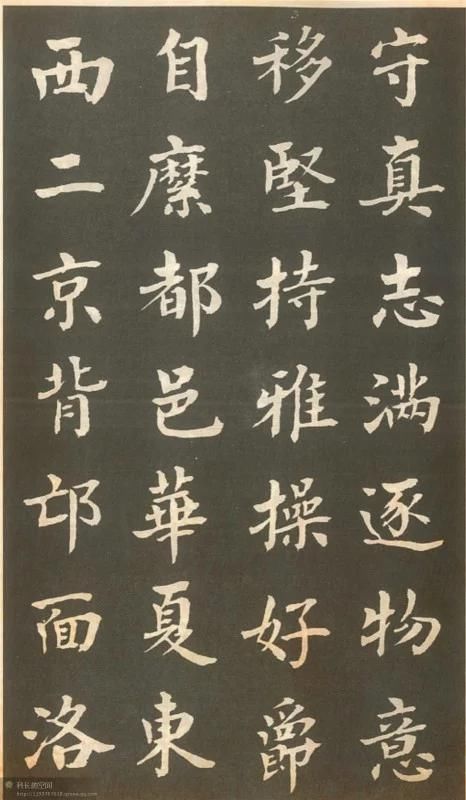 守真志满逐物意
移堅持雅操好爵
自縻都邑華夏東
西二京背邙面洛
科长的空间